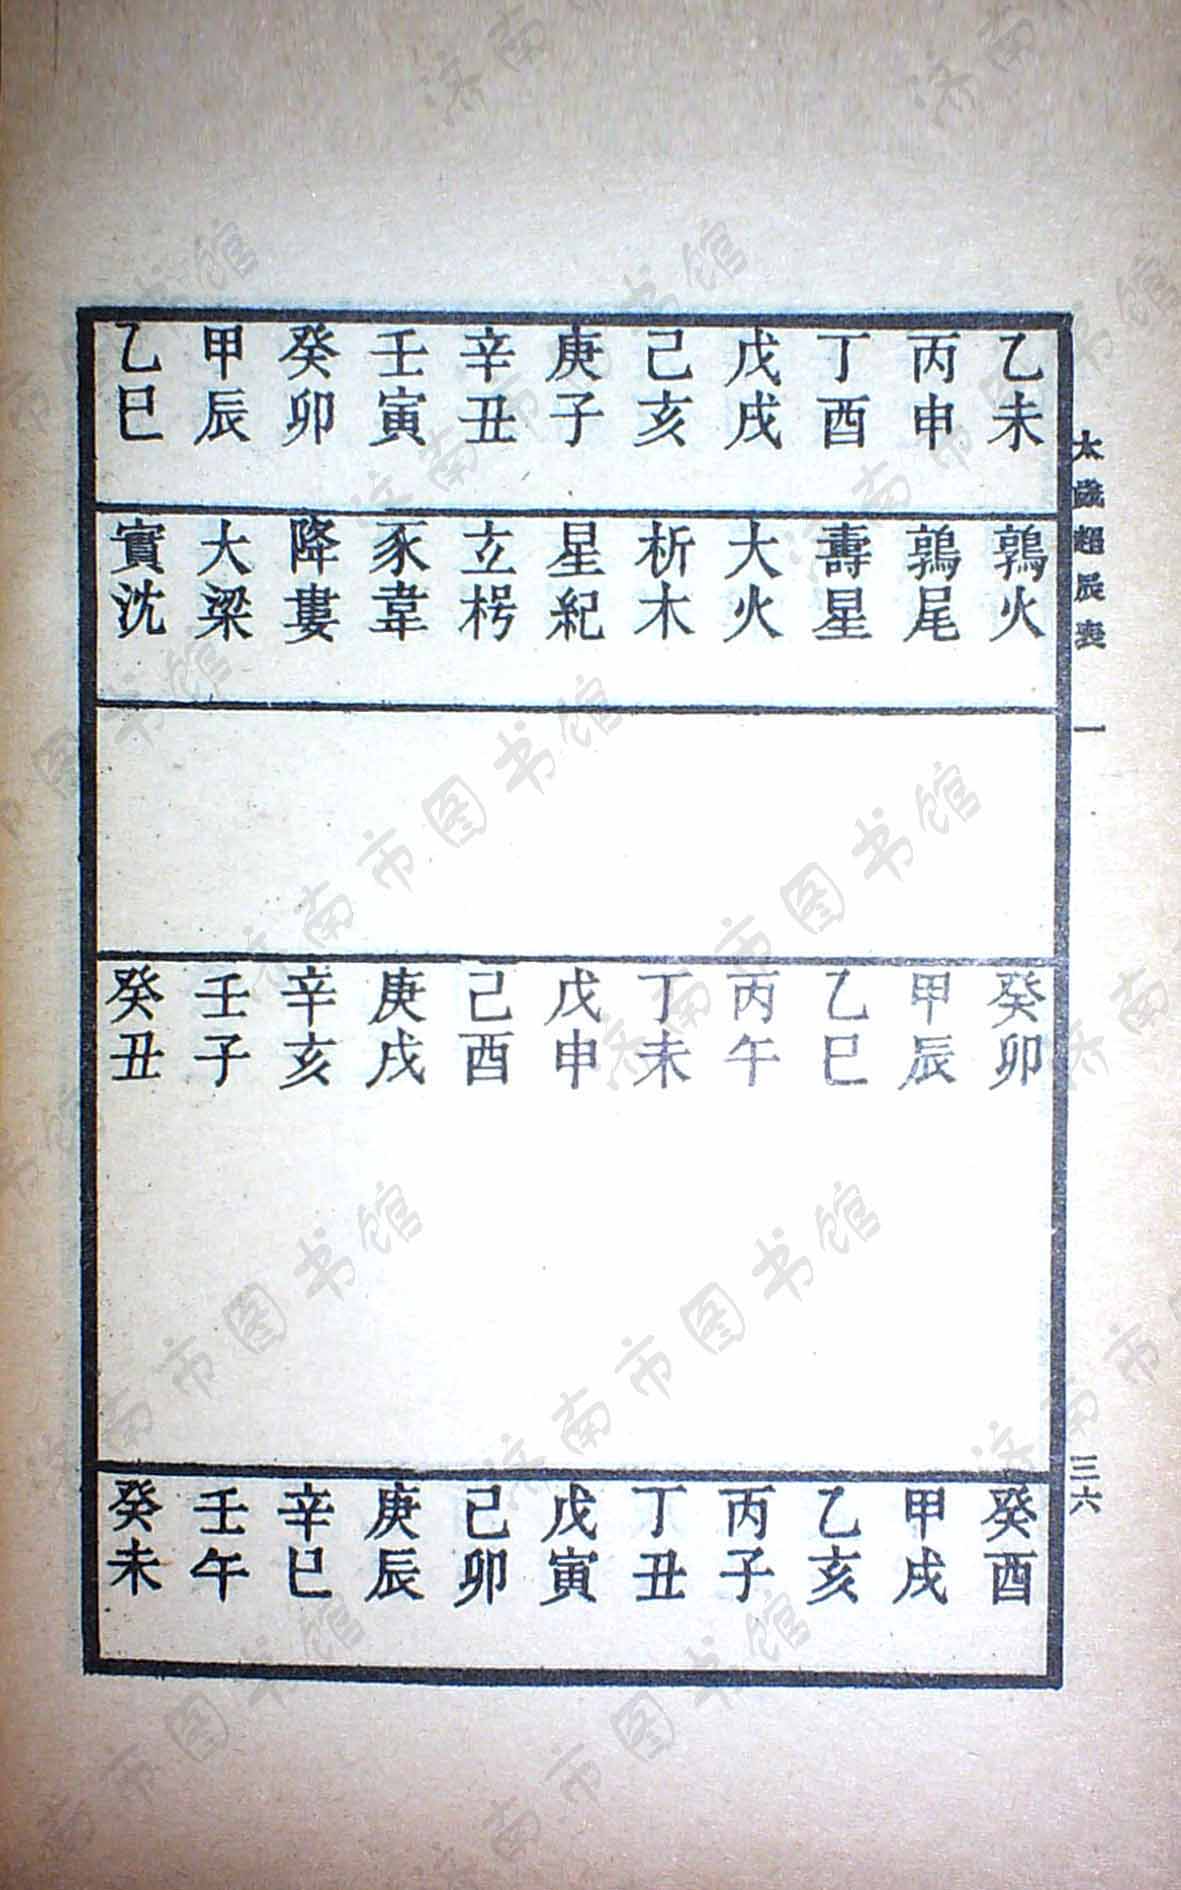 太歲超辰表 一 三六
乙未 丙申 丁酉 戊戌 己亥 庚子 辛丑 壬寅 癸卯 甲辰 乙巳
鶉火 鶉尾 壽星 大火 析木 星紀 立枵 豕韋 降婁 大梁 實沈
癸卯 甲辰 乙巳 丙午 丁未 戊申 己酉 庚戌 辛亥 壬子 癸丑
癸酉 甲戌 乙亥 丙子 丁丑 戊寅 己卯 庚辰 辛巳 壬午 癸未
济南市图书馆